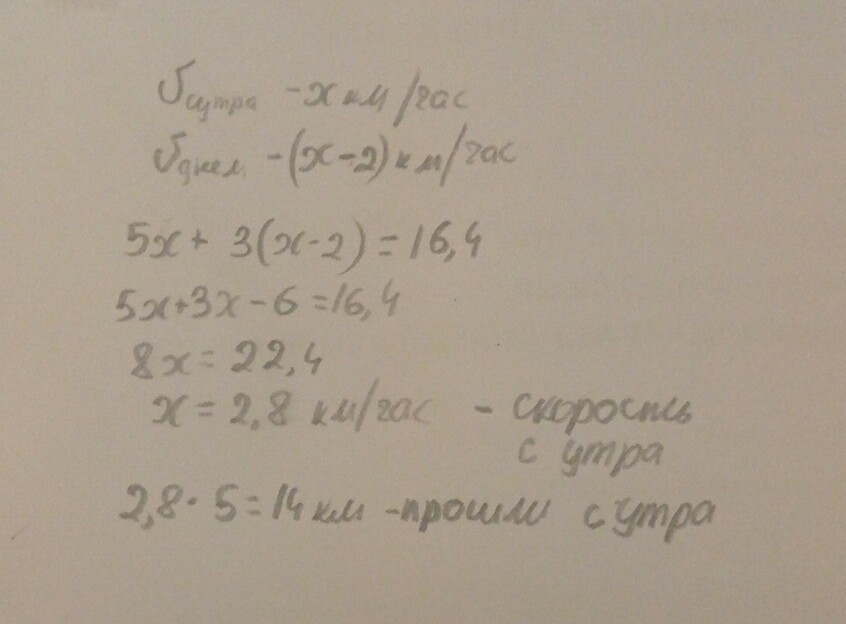 Vсутра - x км/час
Vднем - (x-2) км/час
5x + 3(x-2) = 16,4
5x+3x-6=16,4
8x = 22,4
x = 2,8 км/час - скорость
с утра
2,8 · 5 = 14 км - прошли с утра